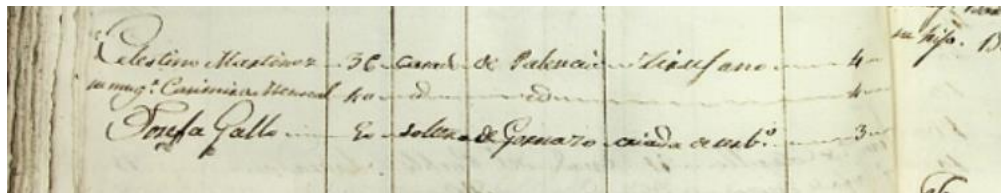 Celestino Martinez 36 casad de Palencia Zirujano 4
su mug.r Casimira 40 id id 4
Josefa Gallo 50 soltera de Gormazo criada de 3
su hijo. 13